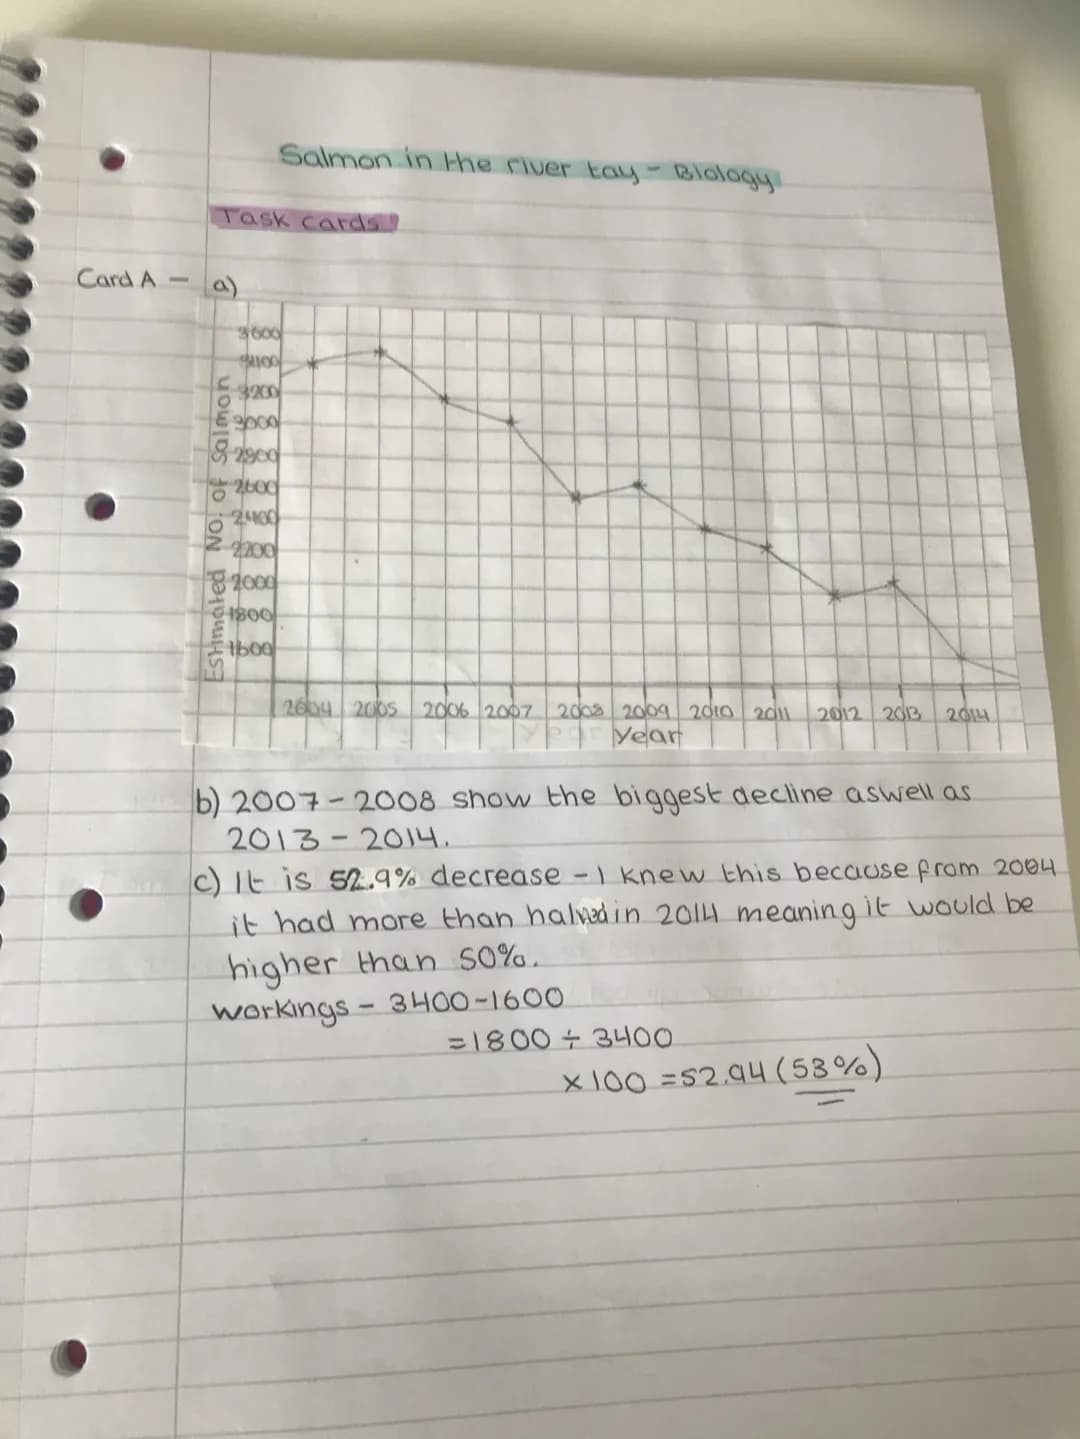 Salmon in the river tay - Biology
Task cards!
Card A - a)
3600
3400
3200
3000
2800
2600
2400
2200
2000
1800
1600
Estimated NO. of Salmon
2004 2005 2006 2007 2008 2009 2010 2011 2012 2013 2014
Year
b) 2007-2008 show the biggest decline aswell as
2013-2014.
c) It is 52.9% decrease - I knew this because from 2004
it had more than halved in 2014 meaning it would be
higher than 50%.
workings - 3400-1600
=1800 ÷ 3400
×100 =52.94 (53%)